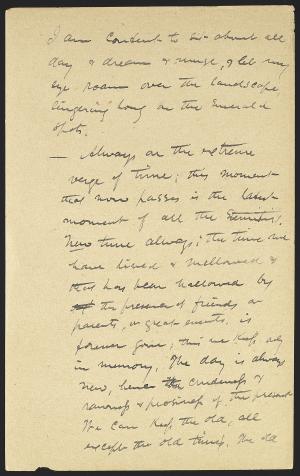 I am content to sit about all
day & dream & muse, & let my
eye roam over the landscape
lingering long on the emerald
spots.
— Always on the extreme
verge of time; this moment
that now passes is the latest
moment of all the eternities.
New time always; the time we
have lived & mellowed &
has been hallowed by
the presence of friends or
parents, or great events, is
forever gone; this we keep only
in memory. The day is always
new, hence the crudeness &
rawness & prosiness of the present
We can keep the old, all
except the old times. The old